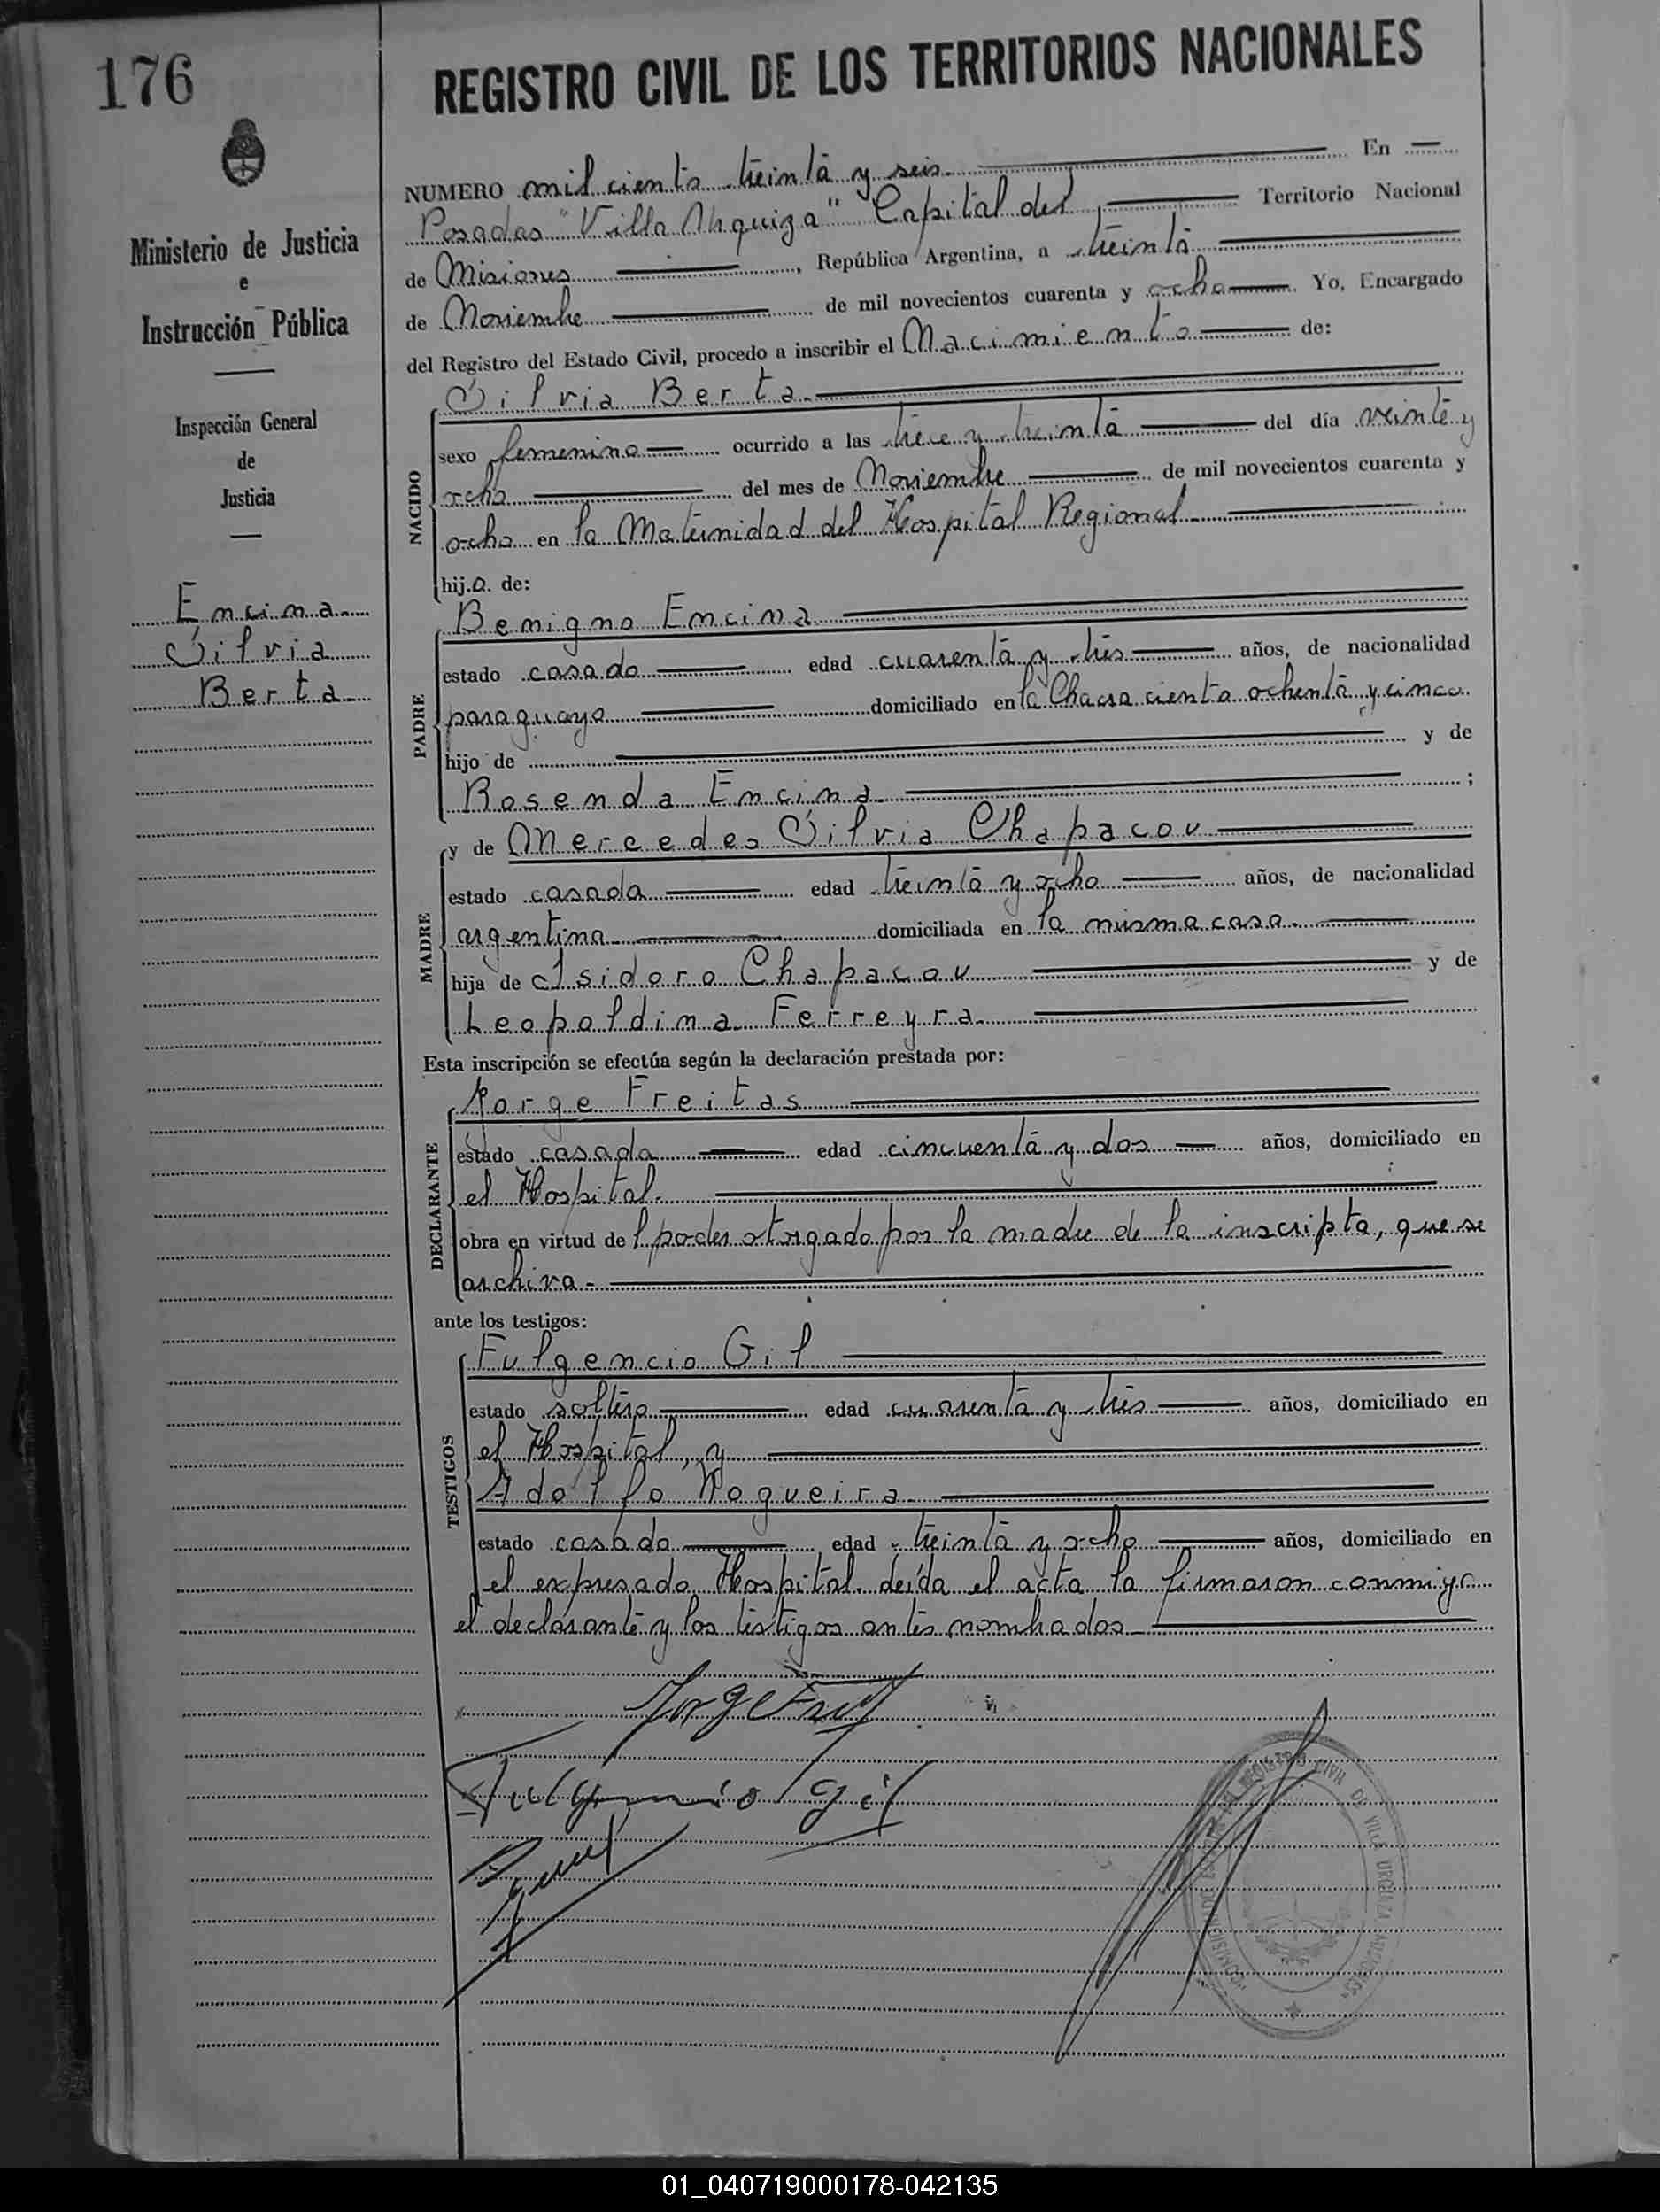 176
REGISTRO CIVIL DE LOS TERRITORIOS NACIONALES
Ministerio de Justicia
e
Instrucción Pública
Inspección General
de
Justicia
Encina
Silvia
Berta
NUMERO mil ciento treinta y seis En
Posadas "Villa Urquiza" Capital del Territorio Nacional
de Misiones, República Argentina, a treinta
de Noviembre de mil novecientos cuarenta y ocho. Yo, Encargado
del Registro del Estado Civil, procedo a inscribir el Nacimiento de:
NACIDO
Silvia Berta
sexo femenino ocurrido a las trece y treinta del día veinte y
ocho del mes de Noviembre de mil novecientos cuarenta y
ocho en la Maternidad del Hospital Regional
hija de:
PADRE
Benigno Encina
estado casado edad cuarenta y tres años, de nacionalidad
paraguayo domiciliado en la Chacra ciento ochenta y cinco
hijo de y de
Rosenda Encina ;
MADRE
y de Mercedes Silvia Chapacou
estado casada edad treinta y ocho años, de nacionalidad
argentina domiciliada en la misma casa
hija de Isidoro Chapacou y de
Leopoldina Ferreyra
Esta inscripción se efectúa según la declaración prestada por:
DECLARANTE
Jorge Freitas
estado casado edad cincuenta y dos años, domiciliado en
el Hospital
obra en virtud del poder otorgado por la madre de la inscripta, que se
archiva.-
ante los testigos:
TESTIGOS
Fulgencio Gil
estado soltero edad cuarenta y tres años, domiciliado en
el Hospital, y
Adolfo Nogueira
estado casado edad treinta y ocho años, domiciliado en
el expresado Hospital. Leída el acta la firmaron conmigo
el declarante y los testigos antes nombrados
Fulgencio Gil
REGISTRO CIVIL DE VILLA URQUIZA MISIONES
01_040719000178-042135